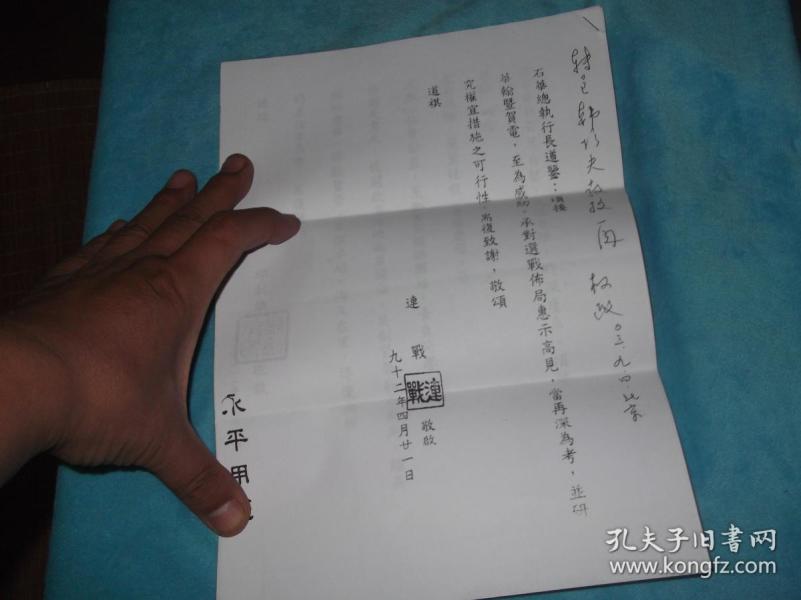 轉呈
教授一閱
〇三.九.四.北京
石華總執行長道鑒：頃接
華翰暨賀電，至為感紉。承對選戰佈局惠示高見，當再深為考，並研
究權宜措施之可行性，耑復致謝，敬頌
道祺
連 戰 敬啟
連戰
九十二年四月廿一日
永平用
孔夫子旧书网
www.kongfz.com